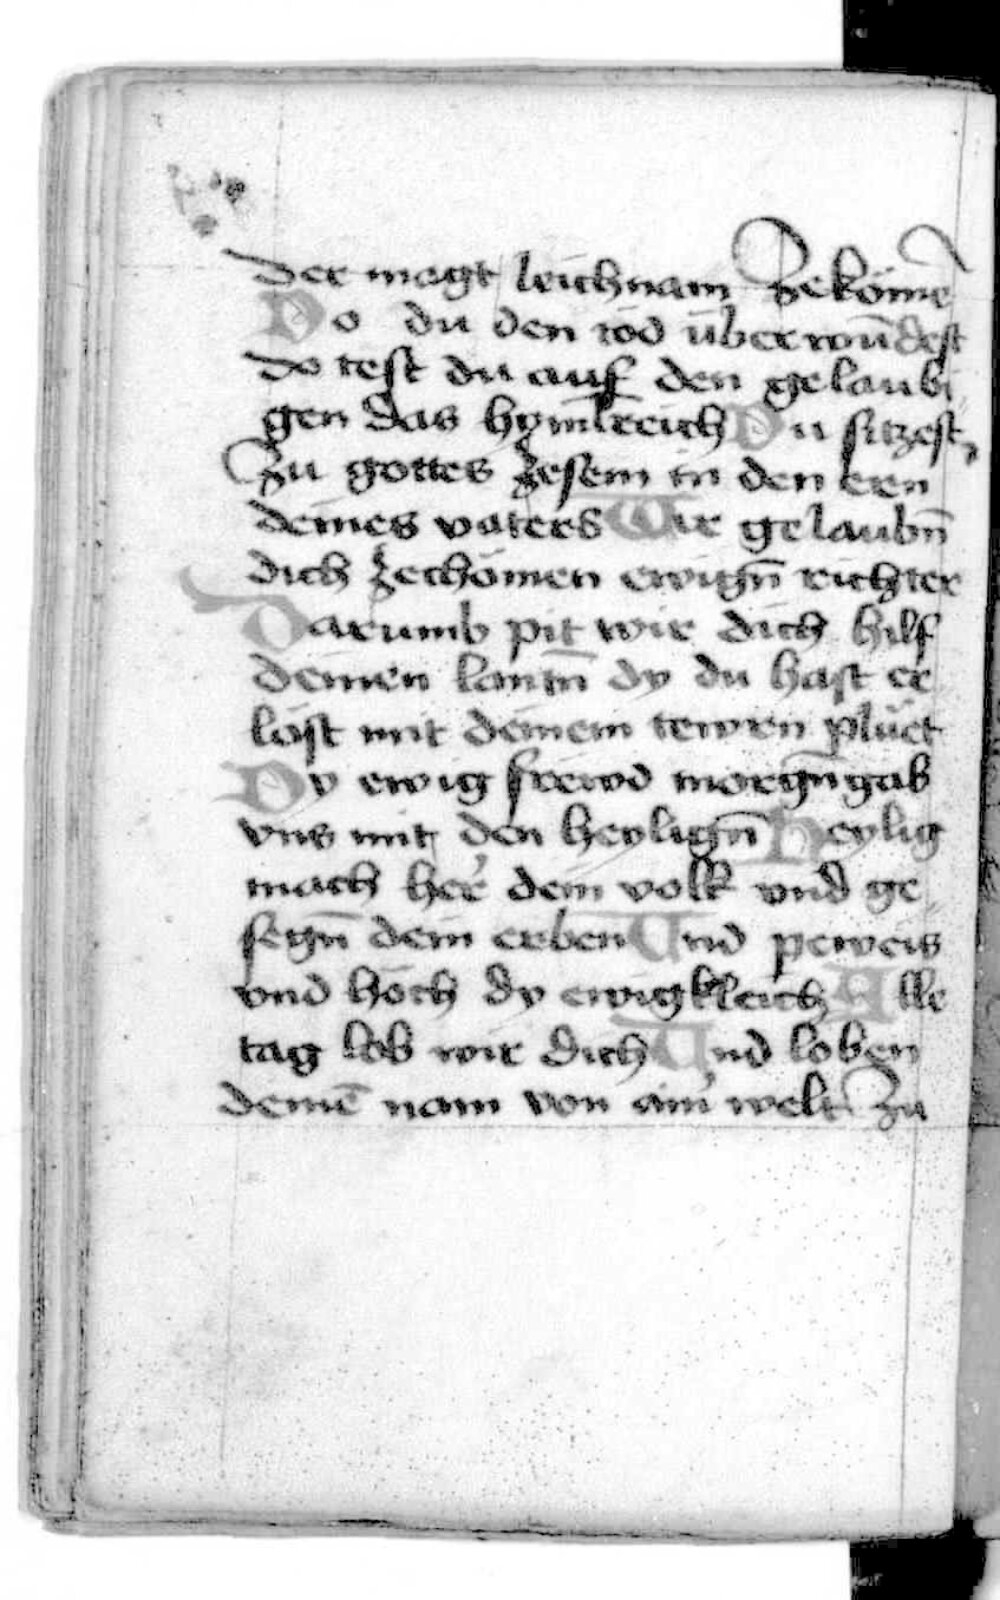 der magt leichnam Zekömē
Do du den tod überwūdest
do test du auf den gelaubi
gen das hymlreich Du sitzest
Zu gottes Zesem in den ern
deines vaters Wir gelaubn̄
dich Zechömen ewign̄ richter
Darumb pit wir dich hilf
deinen lautn̄ dy du hast er
löst mit deinem tewrn plüet
Dy ewig frewd morgn̄gab
vns mit den heylign̄ Heylig
mach her dein volk vnd ge
segn̄ dein erben Vnd peweis
vnd höch dy ewigkleich Alle
tag lob wir dich Vnd loben
deinē nam von ain' welt Zu